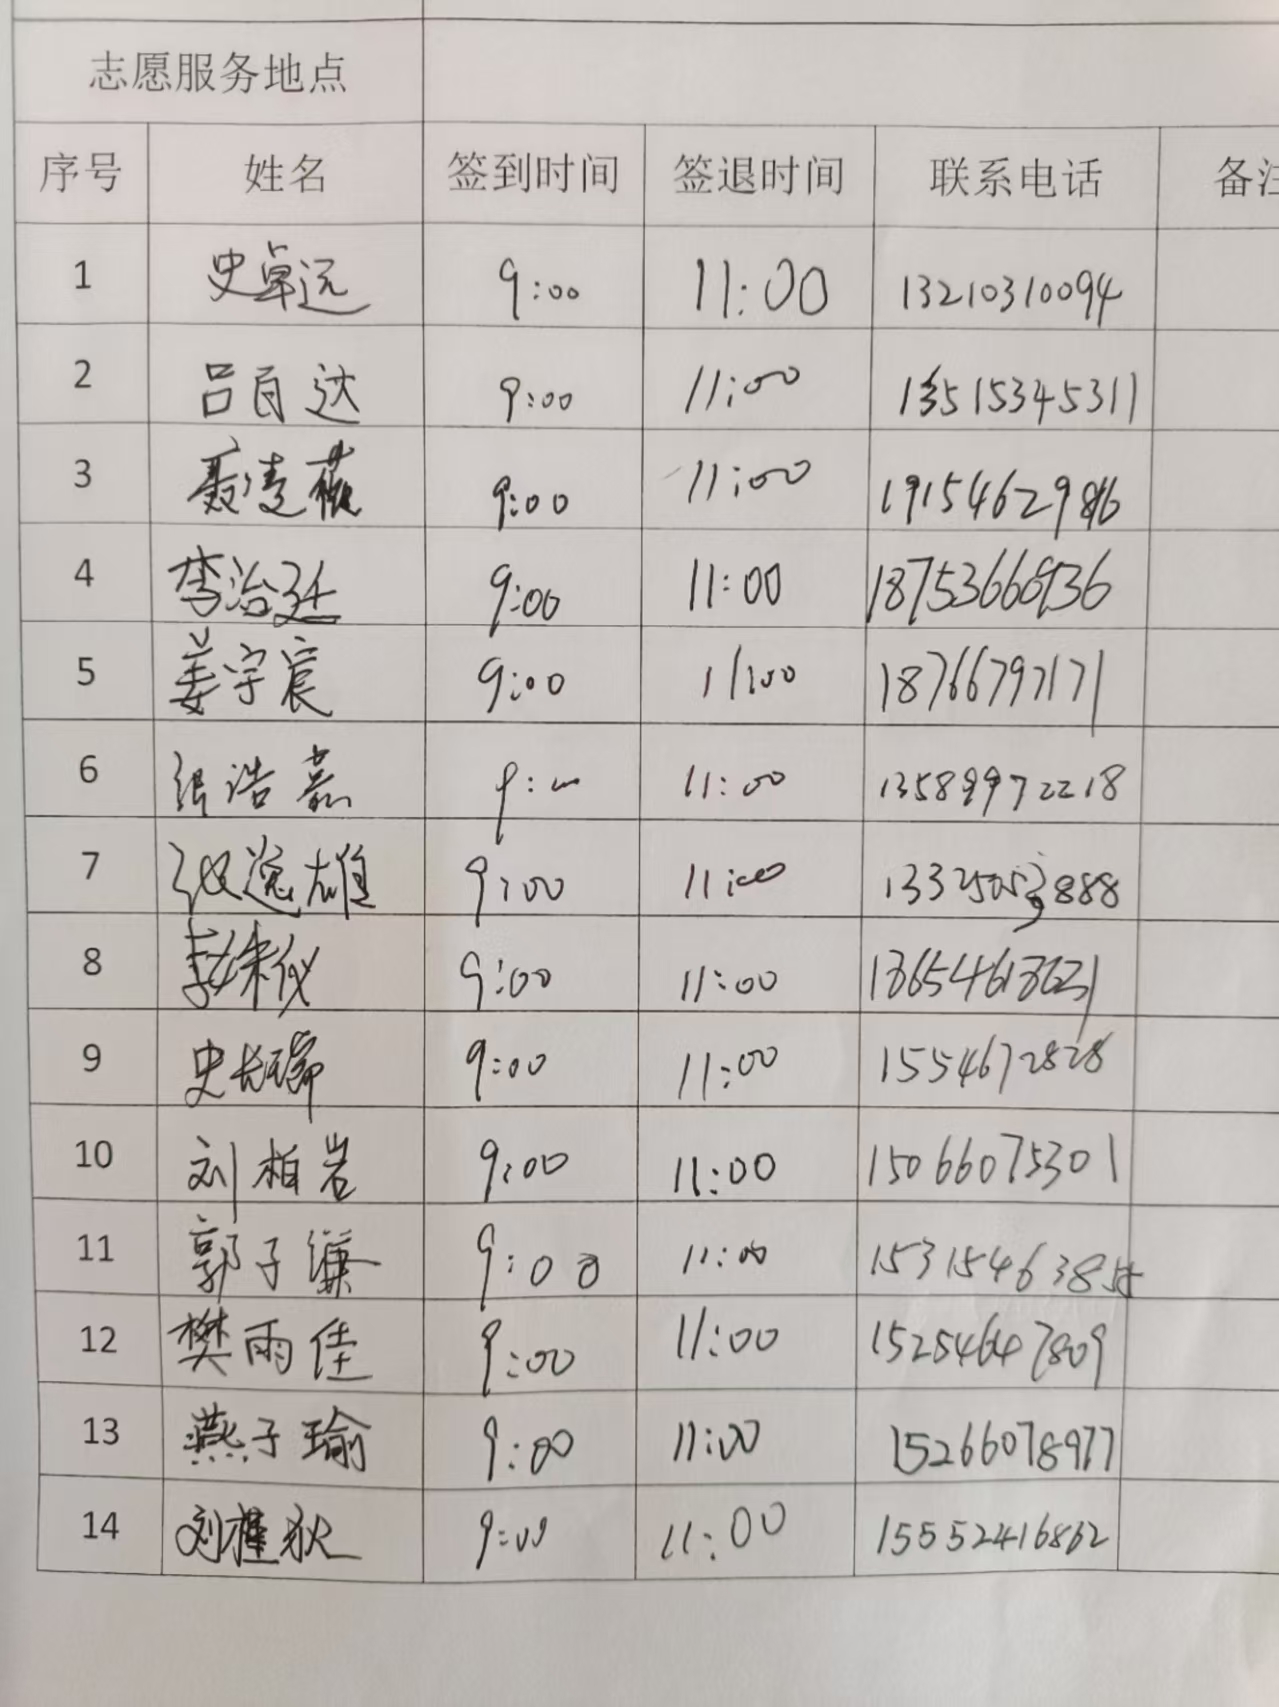 志愿服务地点
序号 姓名 签到时间 签退时间 联系电话 备注
1 史卓远 9:00 11:00 13210310094
2 吕百达 9:00 11:00 13515345311
3 聂凌薇 9:00 11:00
4 李治廷 9:00 11:00
5 姜宇宸 9:00 11:00 18766797171
6 张浩嘉 9:00 11:00 13589972218
7 张逸雄 9:00 11:00
8 9:00 11:00
9 史 9:00 11:00 1554672828
10 刘柏岩 9:00 11:00 15066075301
11 郭子谦 9:00 11:00
12 樊雨佳 9:00 11:00 15254647809
13 燕子瑜 9:00 11:00 15266078977
14 刘 9:00 11:00 15552416862